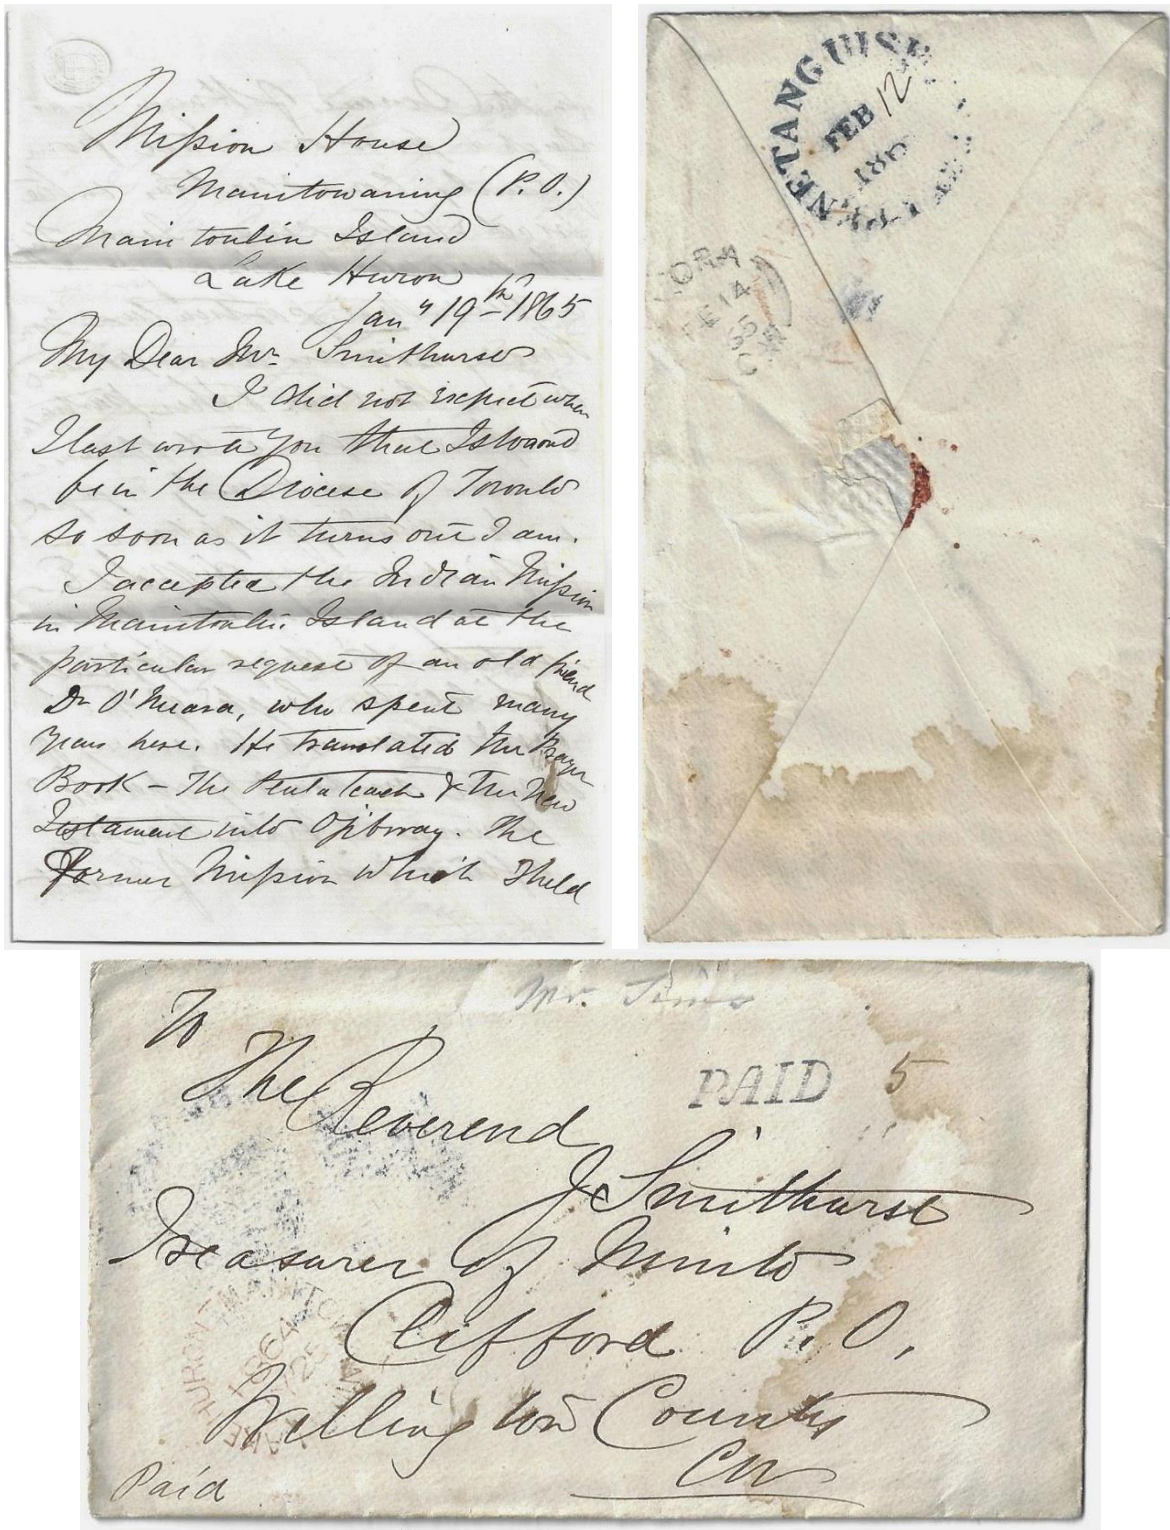 Mission House
Manitowaning (P.O.)
Manitoulin Island
Lake Huron
Jany 19th 1865
My Dear Mr Smithurst
I did not expect when
I last wrote you that I should
be in the Diocese of Toronto
so soon as it turns out I am.
I accepted the Indian Mission
in Manitoulin Island at the
particular request of an old friend
Dr O'Meara, who spent many
years here. He translated the Prayer
Book – The Pentateuch & the New
Testament into Ojibway. The
former Mission which I held
PENETANGUISHE
FEB 12
186
ORA
FE 14
65
CW
Mr. Sims
To
The Reverend
PAID 5
J Smithurst
Treasurer of Minto
Clifford P.O,
Wellington County
CW
MANITO
LAKE HURON
1864
25
Paid